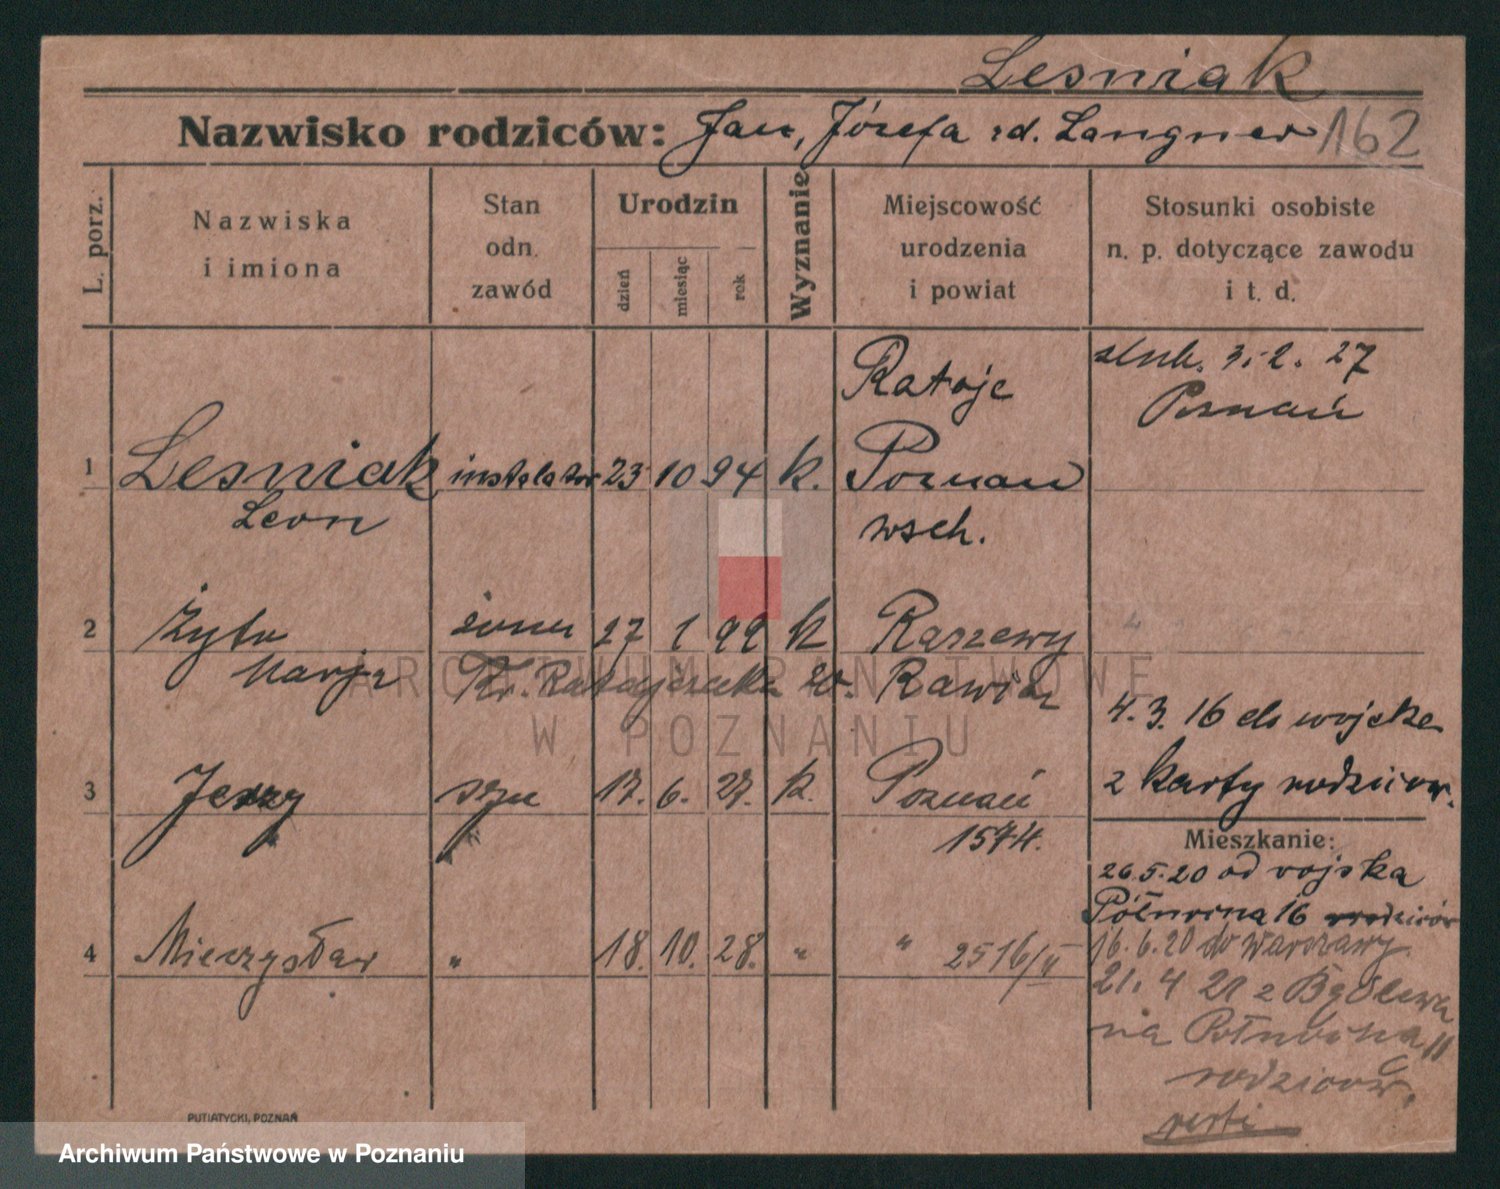 Lesniak
Nazwisko rodziców: Jan, Józefa rd. Langner 162
L. porz.
Nazwiska
i imiona
Stan
odn.
zawód
Urodzin
dzień
miesiąc
rok
Wyznanie
Miejscowość
urodzenia
i powiat
Stosunki osobiste
n. p. dotyczące zawodu
i t. d.
Rataje
ślub. 3.2.27
Poznań
1 Lesniak instalator 23 10 94 k. Poznań
Leon wsch.
2 Żyto żona 27 1 99 k Raszewy
Marja Kr. Ratajczaka 20. Rawicz
4.3.16 do wojska
3 Jerzy syn 17. 6. 27. k. Poznań
1574.
z karty rodziców.
Mieszkanie:
26.5.20 od wojska
Półwina 16
4 Mieczysław " 18. 10. 28. " " 2516/II
16.6.20 do Warszawy
21.4 21 z
na 11
rodziców.
verte
PUTIATYCKI, POZNAŃ
ARCHIWUM PAŃSTWOWE
W POZNANIU
Archiwum Państwowe w Poznaniu